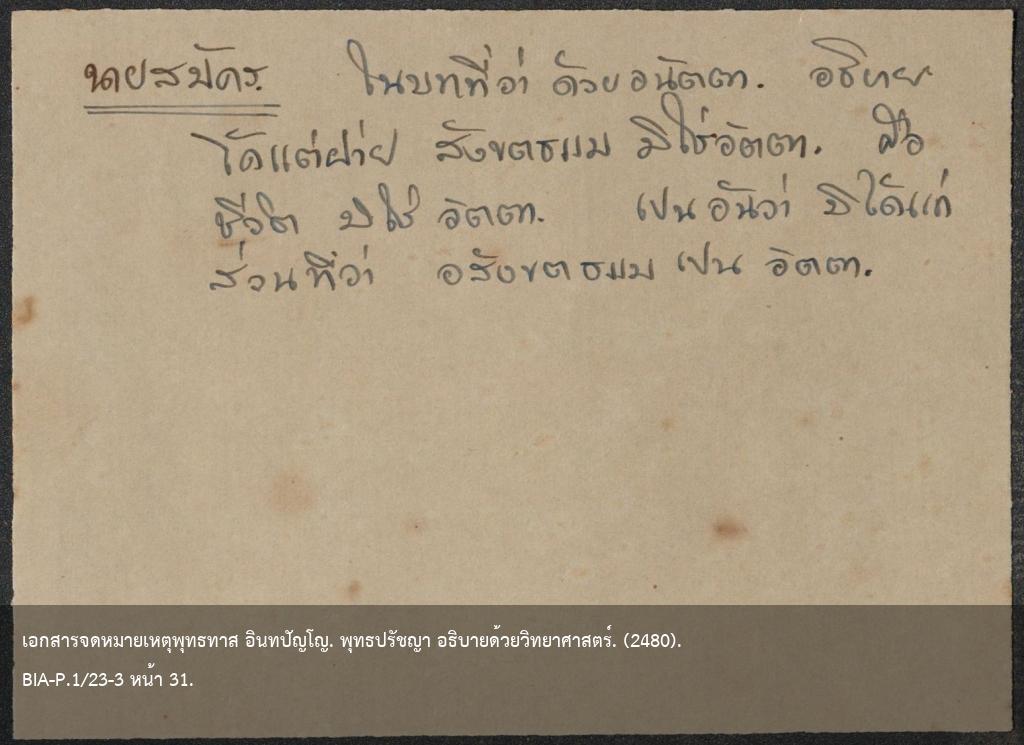 นายสมัคร. ในบทที่ว่า ด้วยอนัตตา. อธิบาย
ได้แต่ฝ่าย สังขตธมม มิใช่อัตตา. คือ
ชีวิต มิใช่ อัตตา. เปนอันว่า มิได้แก่
ส่วนที่ว่า อสังขตธมม เปน อัตตา.
เอกสารจดหมายเหตุพุทธทาส อินทปัญโญ. พุทธปรัชญา อธิบายด้วยวิทยาศาสตร์. (2480).
BIA-P.1/23-3 หน้า 31.